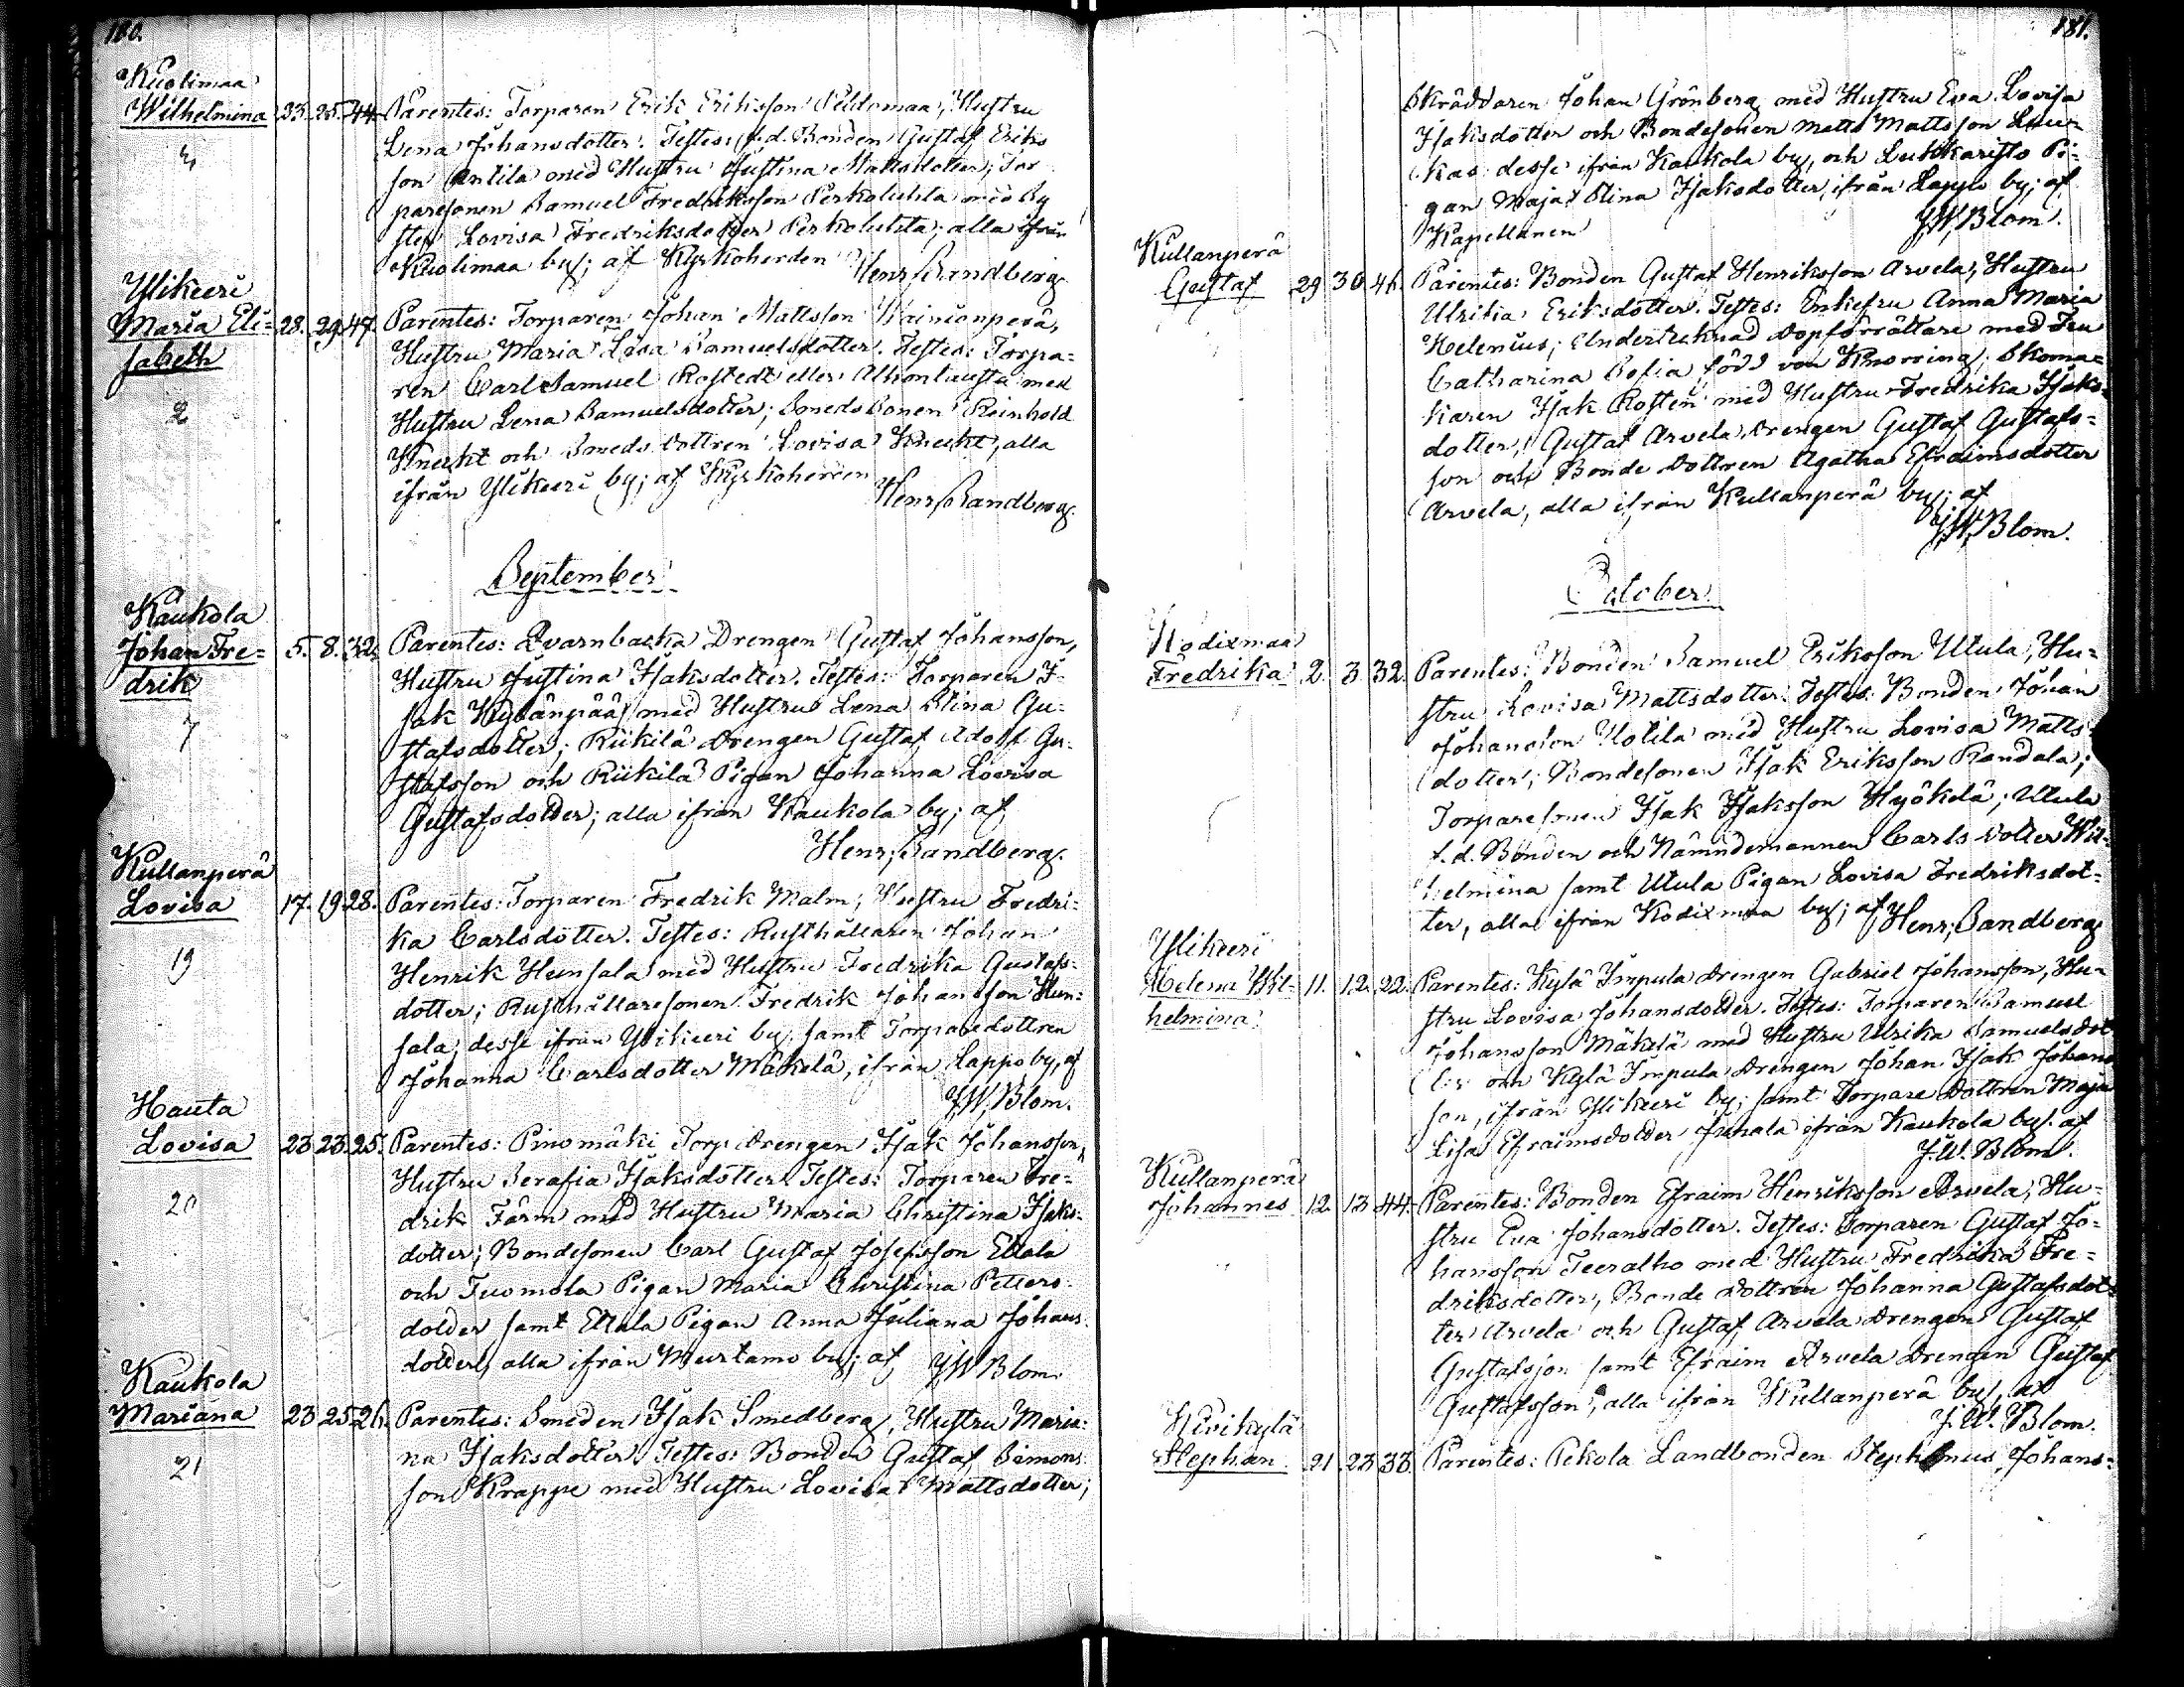 180.
Kuolimaa
Wilhelmina 23. 25. 44. Parentes: Torparen Erik Eriksson Peldomaa, Hustru
Lena Johansdotter. Testes: f.d. Bonden Gustaf Eriks
son Antila med Hustru Justina Mattsdotter; Tor
paresonen Samuel Fredriksson Perkoluhta med Sy
ster Lovisa Fredriksdotter Perkoluhta; alla ifrån
Kuolimaa by; af Kyrkoherden Henr: Sandberg.
Ylikeeri
Maria Eli= 28. 29. 47. Parentes: Torparen Johan Mattsson Wainionperä,
sabeth Hustru Maria Lisa Samuelsdotter. Testes: Torpa=
2 ren Carl Samuel Rostedt eller Alhonlausta med
Hustru Lena Samuelsdotter; Smeds Sonen Reinhold
Knecht och Smeds dottren Lovisa Knecht, alla
ifrån Ylikeeri by; af Kyrkoherren
Henr: Sandberg.
September
Kaukola
Johan Fre= 5. 8. 32. Parentes: Qvarnbacka Drengen Gustaf Johansson,
drik Hustru Justina Isaksdotter. Testes: Torparen I=
7 sak med Hustru Lena Stina Gu=
stafsdotter; Riikilä Drengen Gustaf Adolf Gu=
stafsson och Riikilä Pigan Johanna Lovisa
Gustafsdotter; alla ifrån Kaukola by; af
Henr: Sandberg.
Kullanperä
Lovisa 17. 19. 28. Parentes: Torparen Fredrik Malm, Hustru Fredri=
ka Carlsdotter. Testes: Rusthållaren Johan
19 Henrik Hunsala med Hustru Fredrika Gustafs=
dotter; Rusthållaresonen Fredrik Johansson Hun=
sala, desse ifrån Ylikeeri by, samt Torparedottren
Johanna Carlsdotter Mäkelä, ifrån Lappo by, af
J.W. Blom.
Hauta
Lovisa 23 23. 25. Parentes: Pinomäki Torp drengen Isak Johansson,
Hustru Serafia Isaksdotter. Testes: Torparen Fre=
20 drik Färm med Hustru Maria Christina Isaks=
dotter; Bondesonen Carl Gustaf Josefsson Ettala
och Tuomola Pigan Maria Christina Petters=
dotter samt Ettala Pigan Anna Juliana Johans
dotter, alla ifrån Murtamo by; af J.W. Blom.
Kaukola
Mariana 23 25 26. Parentes: Smeden Isak Smedberg, Hustru Maria=
na Isaksdotter. Testes: Bonden Gustaf Simons
21 son Krappe med Hustru Lovisa Mattsdotter;
181.
Skräddaren Johan Grönberg med Hustru Eva Lovisa
Isaksdotter och Bondesonen Matts Mattsson Lau=
kas desse ifrån Kaukola by, och Lukkaristo Pi=
gan Maja Stina Isaksdotter, ifrån Lappo by; af
Kapellanen J.W. Blom.
Kullanperä
Gustaf 29 30. 46. Parentes: Bonden Gustaf Henriksson Arvela, Hustru
Ulrika Eriksdotter. Testes: Enkefru Anna Maria
Helenius; Undertecknad Dopförrättare med Fru
Catharina Sofia född von Knorring; Skoma=
karen Isak Rosten med Hustru Fredrika Isaks=
dotter; Gustaf Arvela Drengen Gustaf Gustafs=
son och Bonde dottren Agatha Efraimsdotter
Arvela, alla ifrån Kullanperä by; af
J.W. Blom.
October.
Kodixmaa
Fredrika 2. 3. 32. Parentes: Bonden Samuel Eriksson Utula, Hu=
stru Lovisa Mattsdotter. Testes: Bonden Johan
Johansson Uotila med Hustru Lovisa Matts=
dotter; Bondesonen Isak Eriksson Randala;
Torparesonen Isak Isaksson Hyökelä; Utula
f.d. Bonden och Nämndemannen Carls dotter Wil=
helmina samt Utula Pigan Lovisa Fredriksdot=
ter, alla ifrån Kodixmaa by; af Henr: Sandberg
Ylikeeri
Helena Wil= 11. 12. 22. Parentes: Kylä Impula drengen Gabriel Johansson, Hu=
helmina stru Lovisa Johansdotter. Testes: Torparen Samuel
Johansson Mäkelä med Hustru Ulrika Samuelsdot
ter och Kylä Impula drengen Johan Isak Johans
son, ifrån Ylikeeri by; samt Torpare Dottren Maja
Lisa Efraimsdotter Junala ifrån Kaukola by. af
J.W. Blom.
Kullanperä
Johannes 12. 13 44. Parentes: Bonden Efraim Henriksson Arvela, Hu=
stru Eva Johansdotter. Testes: Torparen Gustaf Jo=
hansson Teeratho med Hustru Fredrika Fre=
driksdotter, Bonde dottren Johanna Gustafsdot=
ter Arvela och Gustaf Arvela drengen Gustaf
Gustafsson samt Efraim Arvela Drengen Gustaf
Gustafsson, alla ifrån Kullanperä by, af
J.W. Blom.
Kivikylä
Stephan 21. 23 33. Parentes: Pekola Landbonden Stephanus Johans=